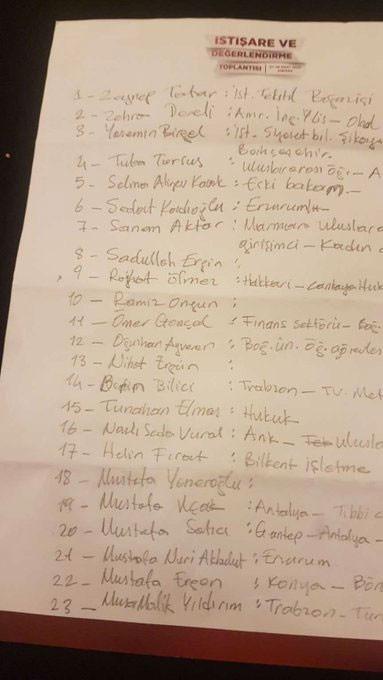 İSTİŞARE VE
DEĞERLENDİRME
TOPLANTISI
1 - Zeynep : İst. Tekstil Boğaziçi
2 - Zehra Develi : Amr. İnç.
3 - Yasemin Birsel : İst. Siyaset bil.
Bahçeşehir.
4 - Tuba : Uluslararası öğ. - A
5 - Selma Aliyev Kavaf : Eski bakan -
6 - Sedat Kadıoğlu : Erzurum
7 - Sanem Aktar : Marmara Uluslara
girişimci - Kadın
8 - Sadullah Ergin :
9 - Rojhat Ölmez : Hakkari - Çankaya Huk
10 - Ramiz Ongun :
11 - Ömer Gençal : Finans sektörü - Boğ
12 - Oğuzhan : Boğ. ün. öğ.
13 - Nihat Ergün :
14 - Betim Bilici : Trabzon - TV.
15 - Tunahan Elmas : Hukuk
16 - Nazlı Seda Vural : Ank - Ulusla
17 - Helin Fırat : Bilkent işletme
18 - Mustafa Yeneroğlu :
19 - Mustafa Uçak : Antalya - Tıbbi
20 - Mustafa : G.antep - Antalya -
21 - Mustafa Nuri Akbulut : Erzurum
22 - Mustafa Ergen : Konya -
23 - Musa Malik Yıldırım : Trabzon -